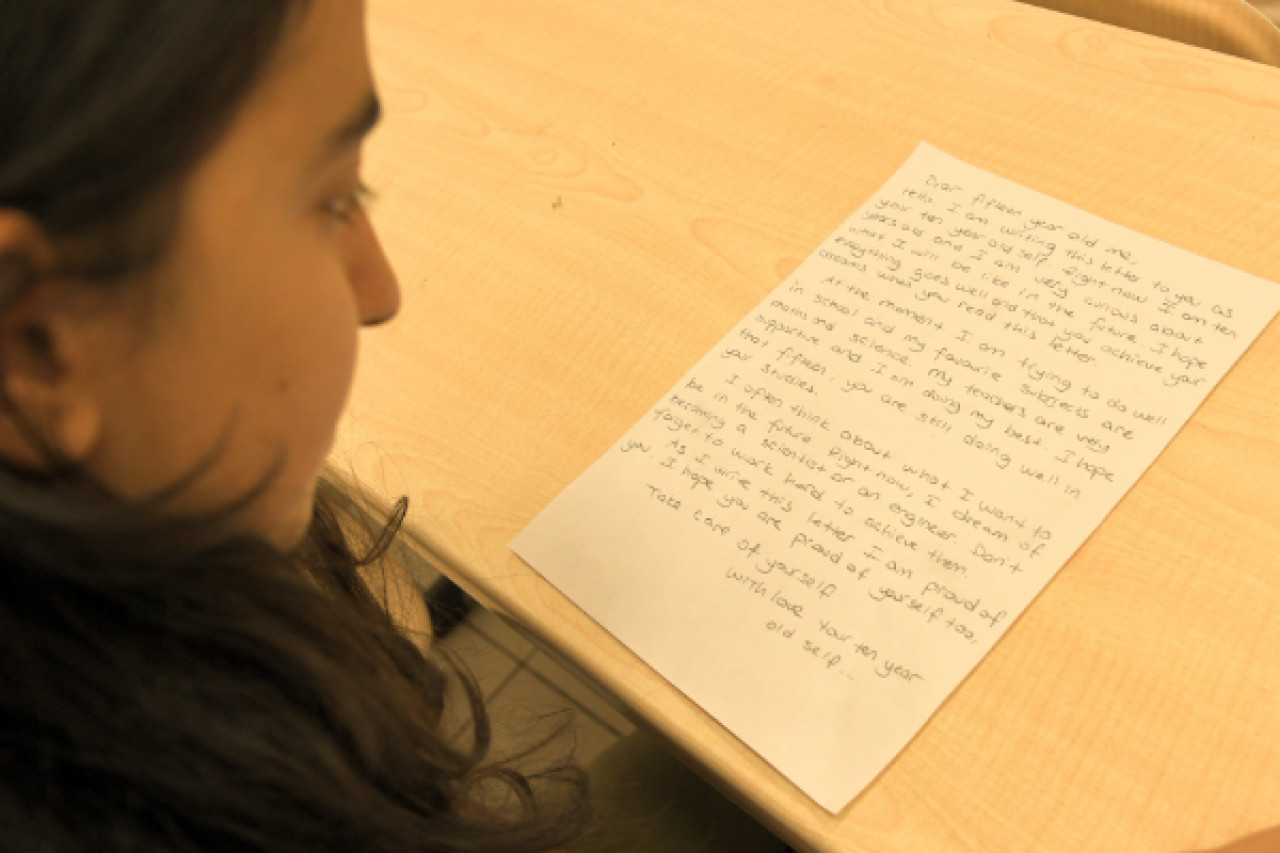 Dear fifteen year old me,
Hello I am writing this letter to you as
your ten year old self. Right now I am ten
years old and I am very curious about
what I will be like in the future. I hope
everything goes well and that you achieve your
dreams when you read this letter.
At the moment I am trying to do well
in school and my favourite subjects are
maths and science. My teachers are very
supportive and I am doing my best. I hope
that fifteen, you are still doing well in
your studies.
I often think about what I want to
be in the future. Right now, I dream of
becoming a scientist or an engineer. Don't
forget to work hard to achieve them.
As I wire this letter I am proud of
you. I hope you are proud of yourself too,
Take care of yourself
With love Your ten year
old self...